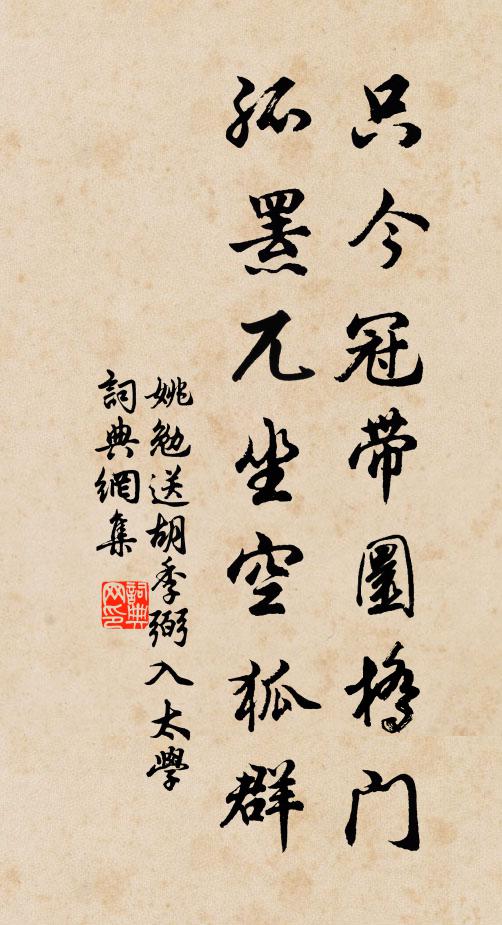 只今冠带圜橋门
孤罴兀坐空狐群
姚勉送胡季弼入太學
詞典網集
詞典网印